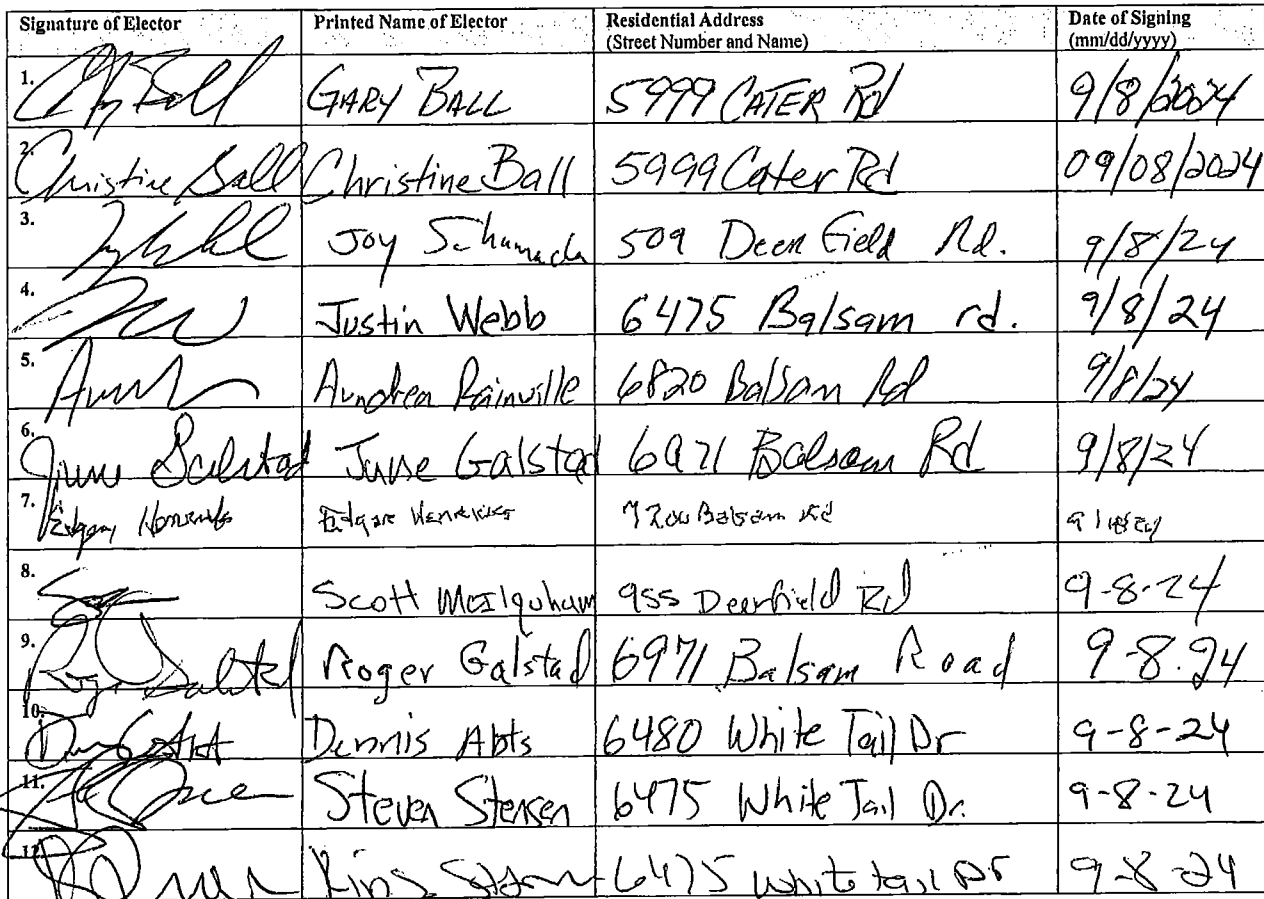 Signature of Elector Printed Name of Elector Residential Address Date of Signing
(Street Number and Name) (mm/dd/yyyy)
1. GARY BALL 5999 CATER Rd 9/8/2024
2. Christine Ball Christine Ball 5999 Cater Rd 09/08/2024
3. Joy 509 Deer Field Rd. 9/8/24
4. Justin Webb 6475 Balsam rd. 9/8/24
5. Aundrea Rainville 6820 Balsam Rd 9/8/24
6. June Galstad June Galstad 6971 Balsam Rd 9/8/24
7. Edgar Balsam Rd
8. Scott McIlquham 955 Deerfield Rd 9-8-24
9. Roger Galstad Roger Galstad 6971 Balsam Road 9-8-24
10. Dennis Abts 6480 White Tail Dr 9-8-24
11. Steven Stensen 6475 White Tail Dr. 9-8-24
12. 6475 White tail Dr 9-8-24